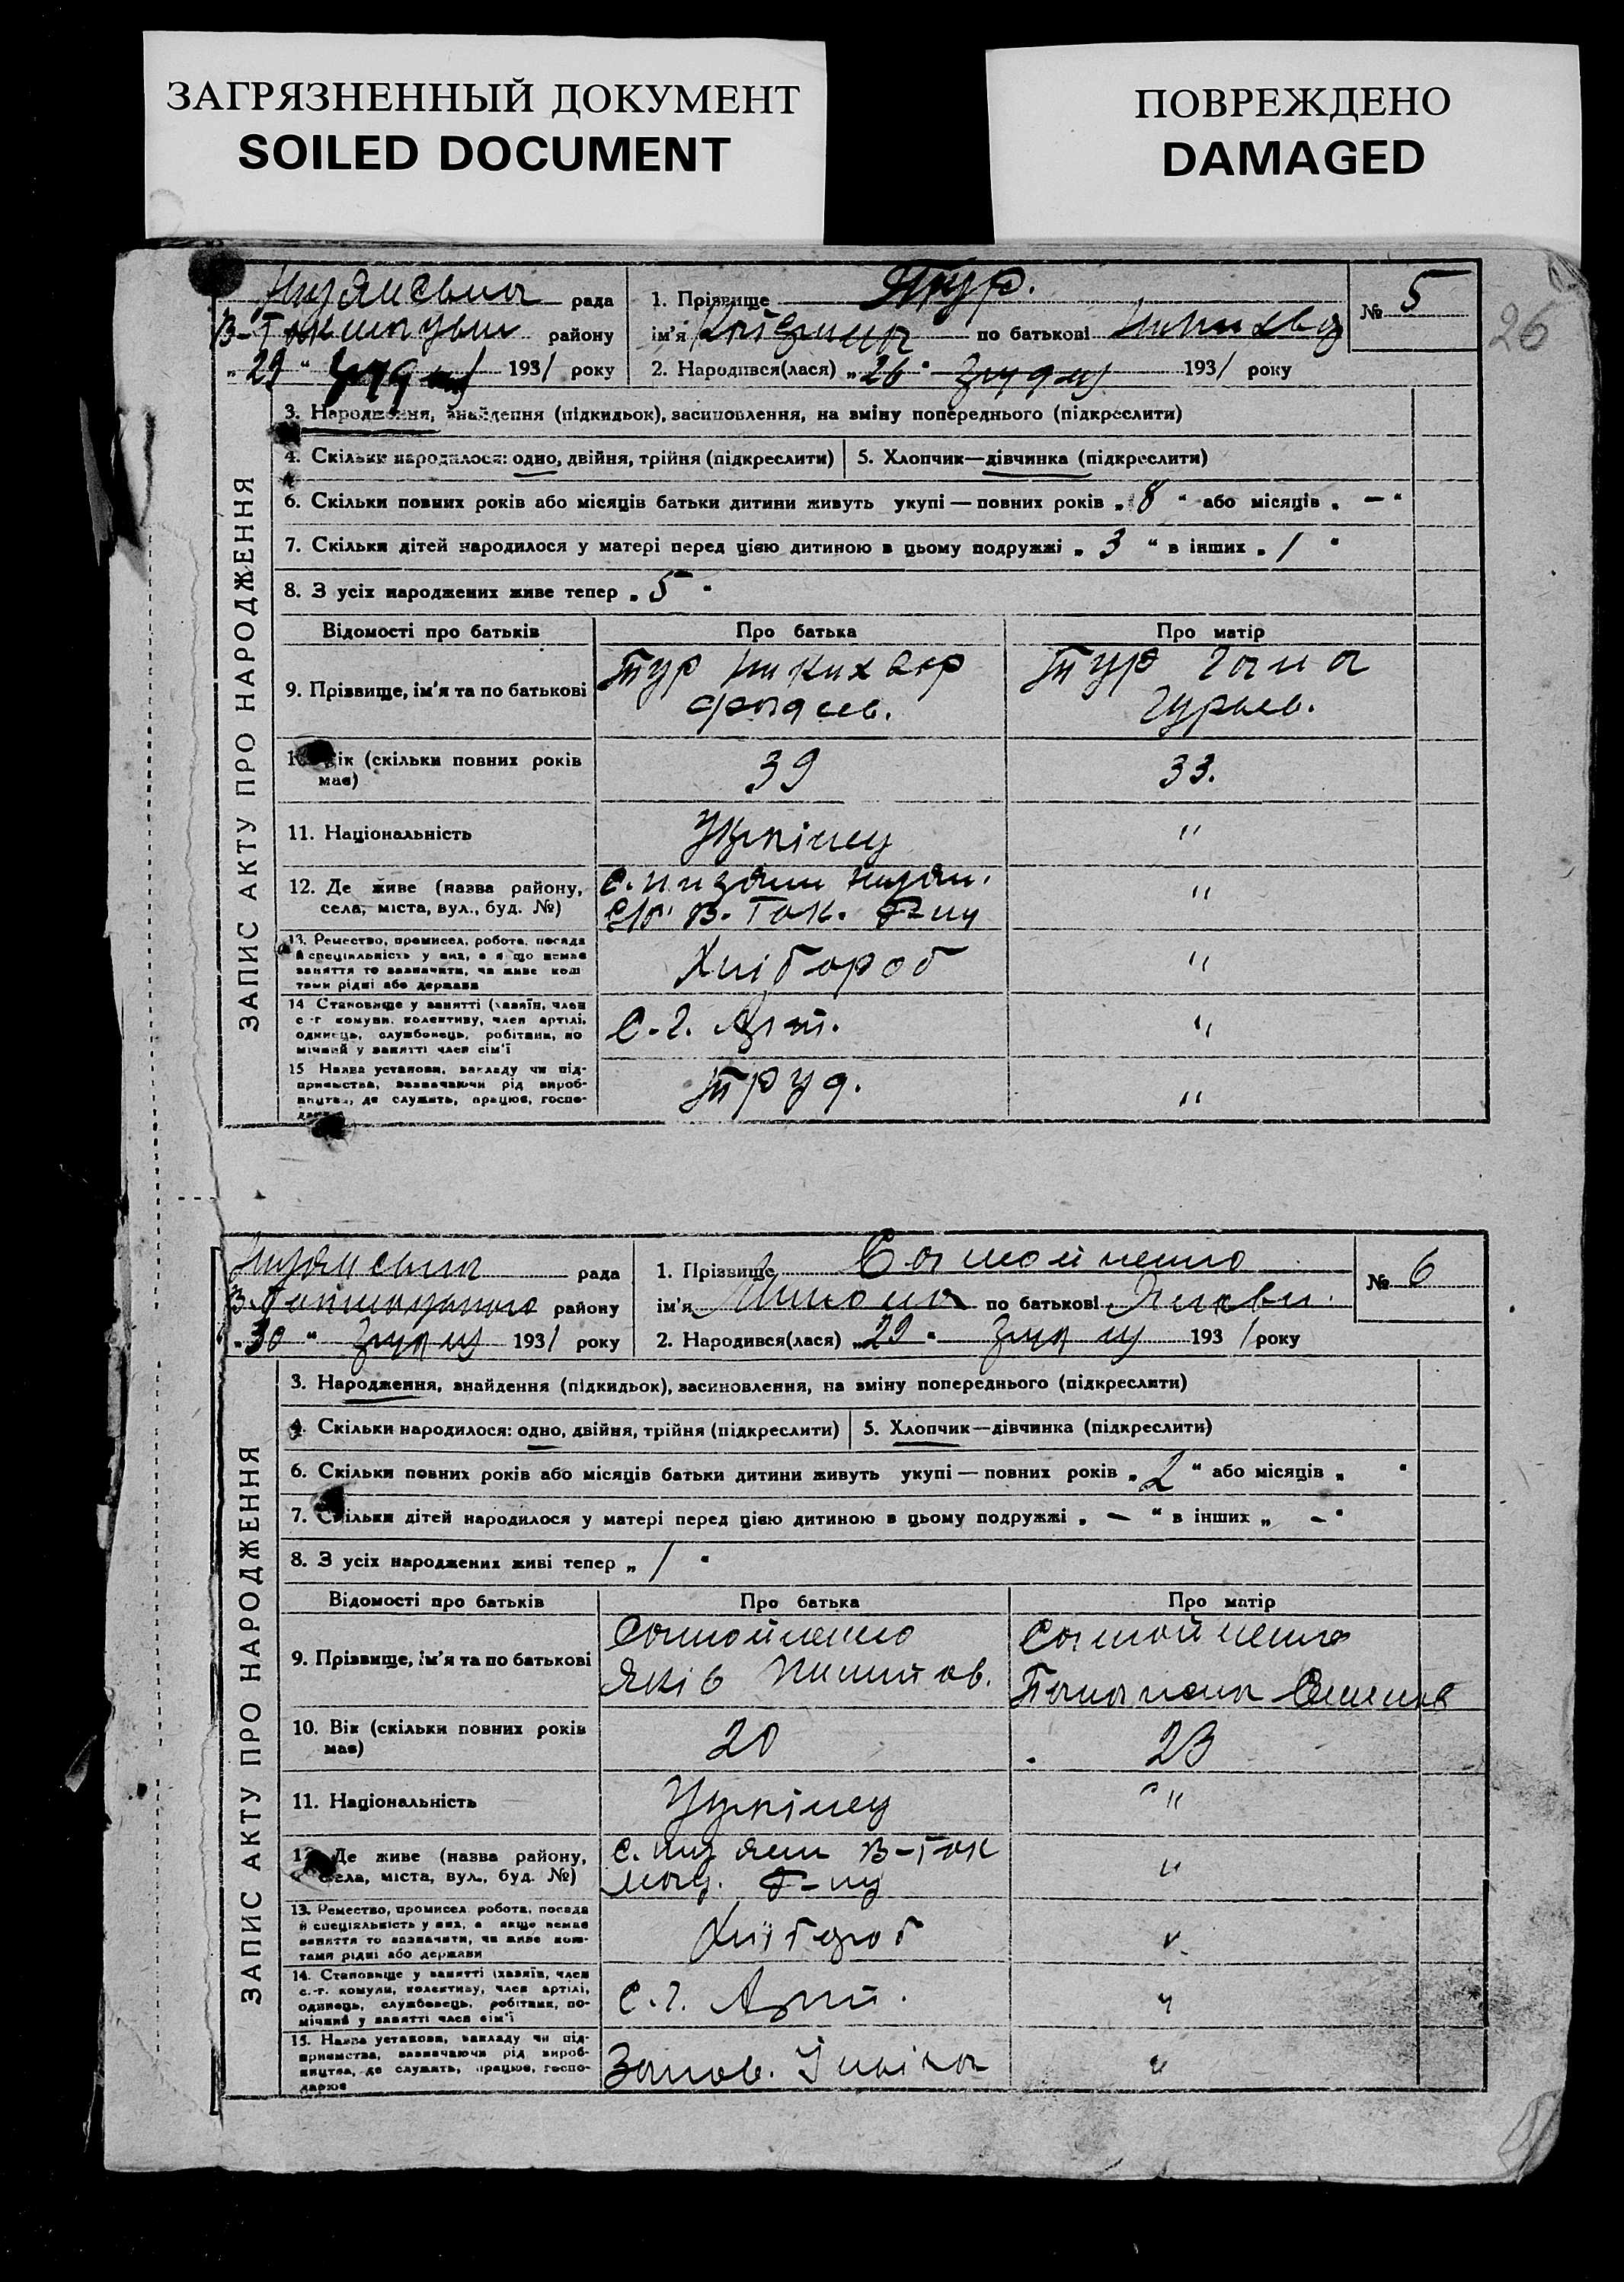 ЗАГРЯЗНЕННЫЙ ДОКУМЕНТ
SOILED DOCUMENT
ПОВРЕЖДЕНО
DAMAGED
26
рада
В-Токмацьк району
„29“ грудня 1931 року
1. Прізвище Тур.
ім'я Катерина по батькові
2. Народився(лася) „26“ грудня 1931 року
№ 5
ЗАПИС АКТУ ПРО НАРОДЖЕННЯ
3. Народження, знайдення (підкидьок), засиновлення, на зміну попереднього (підкреслити)
4. Скільки народилося: одно, двійня, трійня (підкреслити)
5. Хлопчик—дівчинка (підкреслити)
6. Скільки повних років або місяців батьки дитини живуть укупі — повних років „8“ або місяців „—“
7. Скільки дітей народилося у матері перед цією дитиною в цьому подружжі „3“ в інших „1“
8. З усіх народжених живе тепер „5“
Відомості про батьків Про батька Про матір
9. Прізвище, ім'я та по батькові
Тур Никихвор
Фадеев.
Тур Гана
Гурьев.
10. Вік (скільки повних років має) 39 33.
11. Національність Українец "
12. Де живе (назва району, села, міста, вул., буд. №)
с/р. В-Ток. Р-ну "
13. Ремество, промисел, робота, посада й спеціяльність у них, а якщо немає заняття то зазначити, чи живе коштами рідні або держави
Хлібороб "
14. Становище у занятті (хазяїн, член с.-г. комуни, колективу, член артілі, одинець, службовець, робітник, помічний у занятті член сім'ї
С.-г. Арт. "
15. Назва установи, закладу чи підприємства, зазначаючи рід виробництва, де служить, працює, господарює
Труд. "
рада
В-Токмацького району
„30“ грудня 1931 року
1. Прізвище Самойленко
ім'я Микола по батькові Якови.
2. Народився(лася) „29“ грудня 1931 року
№ 6
ЗАПИС АКТУ ПРО НАРОДЖЕННЯ
3. Народження, знайдення (підкидьок), засиновлення, на зміну попереднього (підкреслити)
4. Скільки народилося: одно, двійня, трійня (підкреслити)
5. Хлопчик—дівчинка (підкреслити)
6. Скільки повних років або місяців батьки дитини живуть укупі — повних років „2“ або місяців „ “
7. Скільки дітей народилося у матері перед цією дитиною в цьому подружжі „—“ в інших „—“
8. З усіх народжених живі тепер „1“
Відомості про батьків Про батька Про матір
9. Прізвище, ім'я та по батькові
Самойленко
Яків
Самойленко
10. Вік (скільки повних років має) 20 23
11. Національність Українец "
12. Де живе (назва району, села, міста, вул., буд. №)
В-Ток
мац. Р-ну "
13. Ремество, промисел, робота, посада й спеціяльність у них, а якщо немає заняття то зазначити, чи живе коштами рідні або держави
Хлібороб "
14. Становище у занятті (хазяїн, член с.-г. комуни, колективу, член артілі, одинець, службовець, робітник, помічний у занятті член сім'ї
С.-г. Арт. "
15. Назва установи, закладу чи підприємства, зазначаючи рід виробництва, де служить, працює, господарює
Запов. Ілліча "